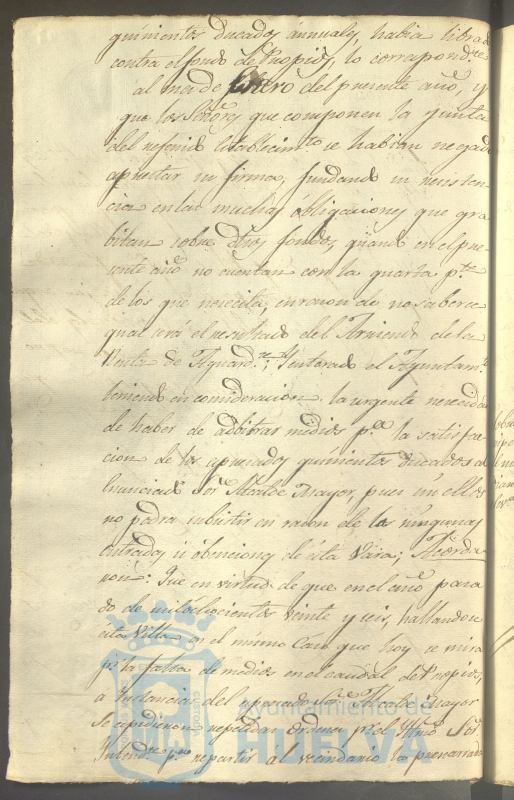 quinientos Ducados annuales, habia librado
contra el fondo de Propios, lo correspondte
al mes de Enero del presente año, y
que los Señores que componen la Junta
del referido Establecimto se habian negado
a prestar su firma, fundando su resisten
cia en las muchas obligaciones que gra
bitan sobre dhos fondos, quando en el pre
sente año no cuentan con la quarta pte
de los que necesita, en razon de no saberse
qual será el resultado del Arriendo de la
Renta de Aguardte; Enterado el Ayuntamto
teniendo en consideracion la urgente necesidad
de haber de arbitrar medios pa la satisfa
cion de los expresados quinientos ducados al
enunciado Sor Alcalde Mayor, pues sin ellos
no podra subsistir en razon de las ningunas
entradas ú obenciones de esta Vara; Acorda
ron: Que en virtud de que en el año pasa
do de mil ochocientos veinte y seis, hallandose
esta Villa en el mismo Caso que hoy se mira
pr la falta de medios en el caudal de Propios,
a Instancias del expresado Sor Alcalde mayor
Se expidieron repetidas ordenes pr el Yltmo Sor
Intendte pa repartir al vecindario la
Ayuntamiento de
HUELVA